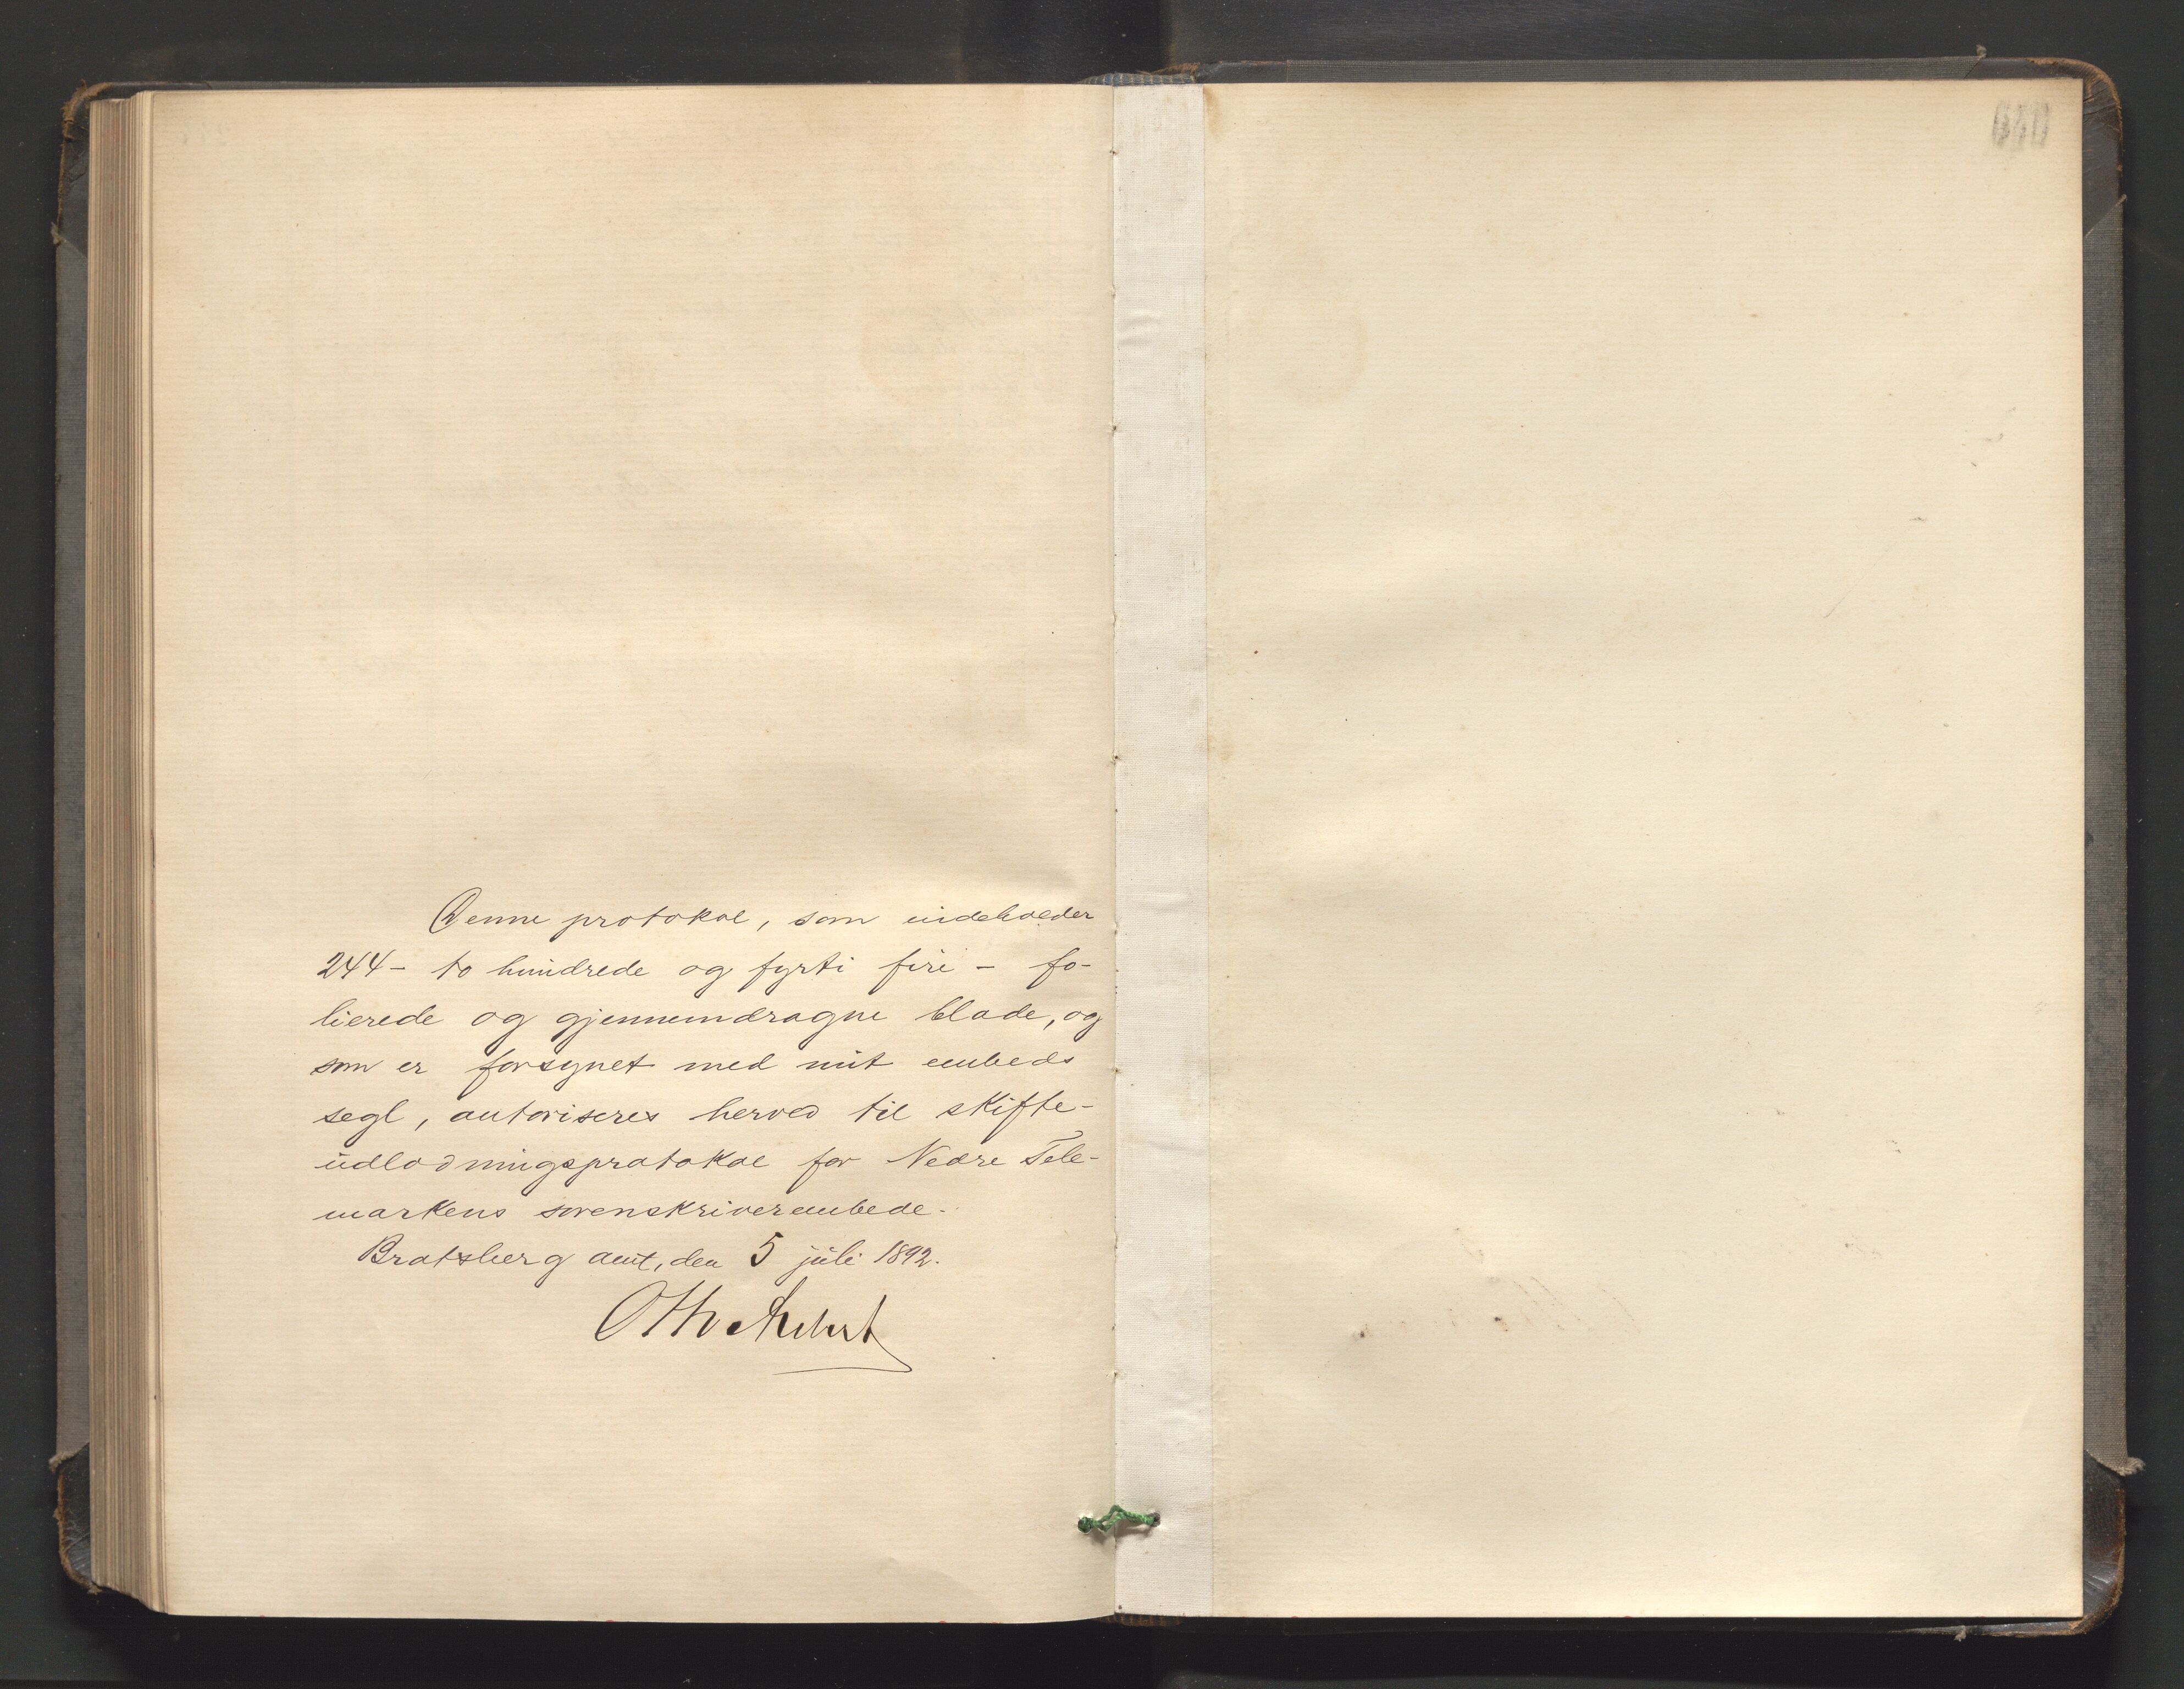 Denne protokol, som indeholder
244 – to hundrede og fyrti fire – fo-
lierede og gjennemdragne blade, og
som er forsynet med mit embeds
segl, autoriseres herved til skifte-
udlodningsprotokol for Nedre Tele-
markens sorenskriverembede.
Bratsberg amt, den 5 juli 1892.